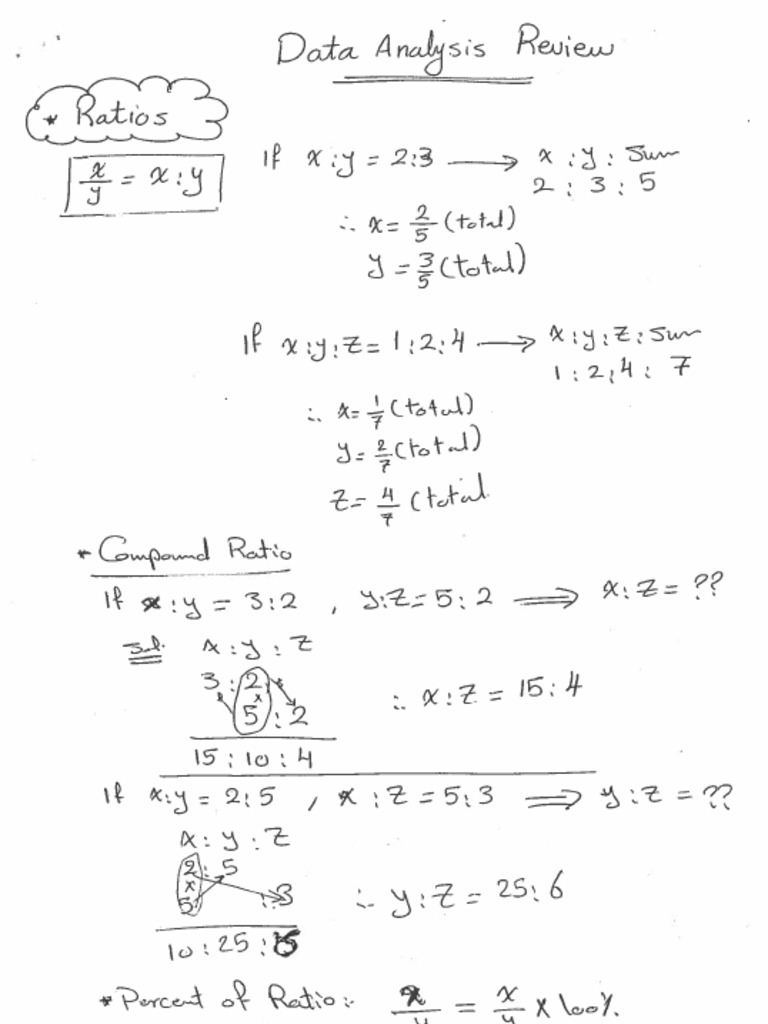 Data Analysis Review
* Ratios
x/y = x:y
If x:y = 2:3 → x : y : Sum
2 : 3 : 5
∴ x = 2/5 (total)
y = 3/5 (total)
If x:y:z = 1:2:4 → x:y:z:Sum
1:2:4: 7
∴ x = 1/7 (total)
y = 2/7 (total)
z = 4/7 (total
* Compound Ratio
If x:y = 3:2 , y:z = 5:2 ⟹ x:z = ??
Sol. x : y : z
3 : 2
x
5 : 2
∴ x:z = 15:4
15 : 10 : 4
If x:y = 2:5 , x:z = 5:3 ⟹ y:z = ??
x : y : z
2 : 5
x
5 : 3
∴ y:z = 25:6
10 : 25 : 6
* Percent of Ratio:- x/y = x/y x 100%